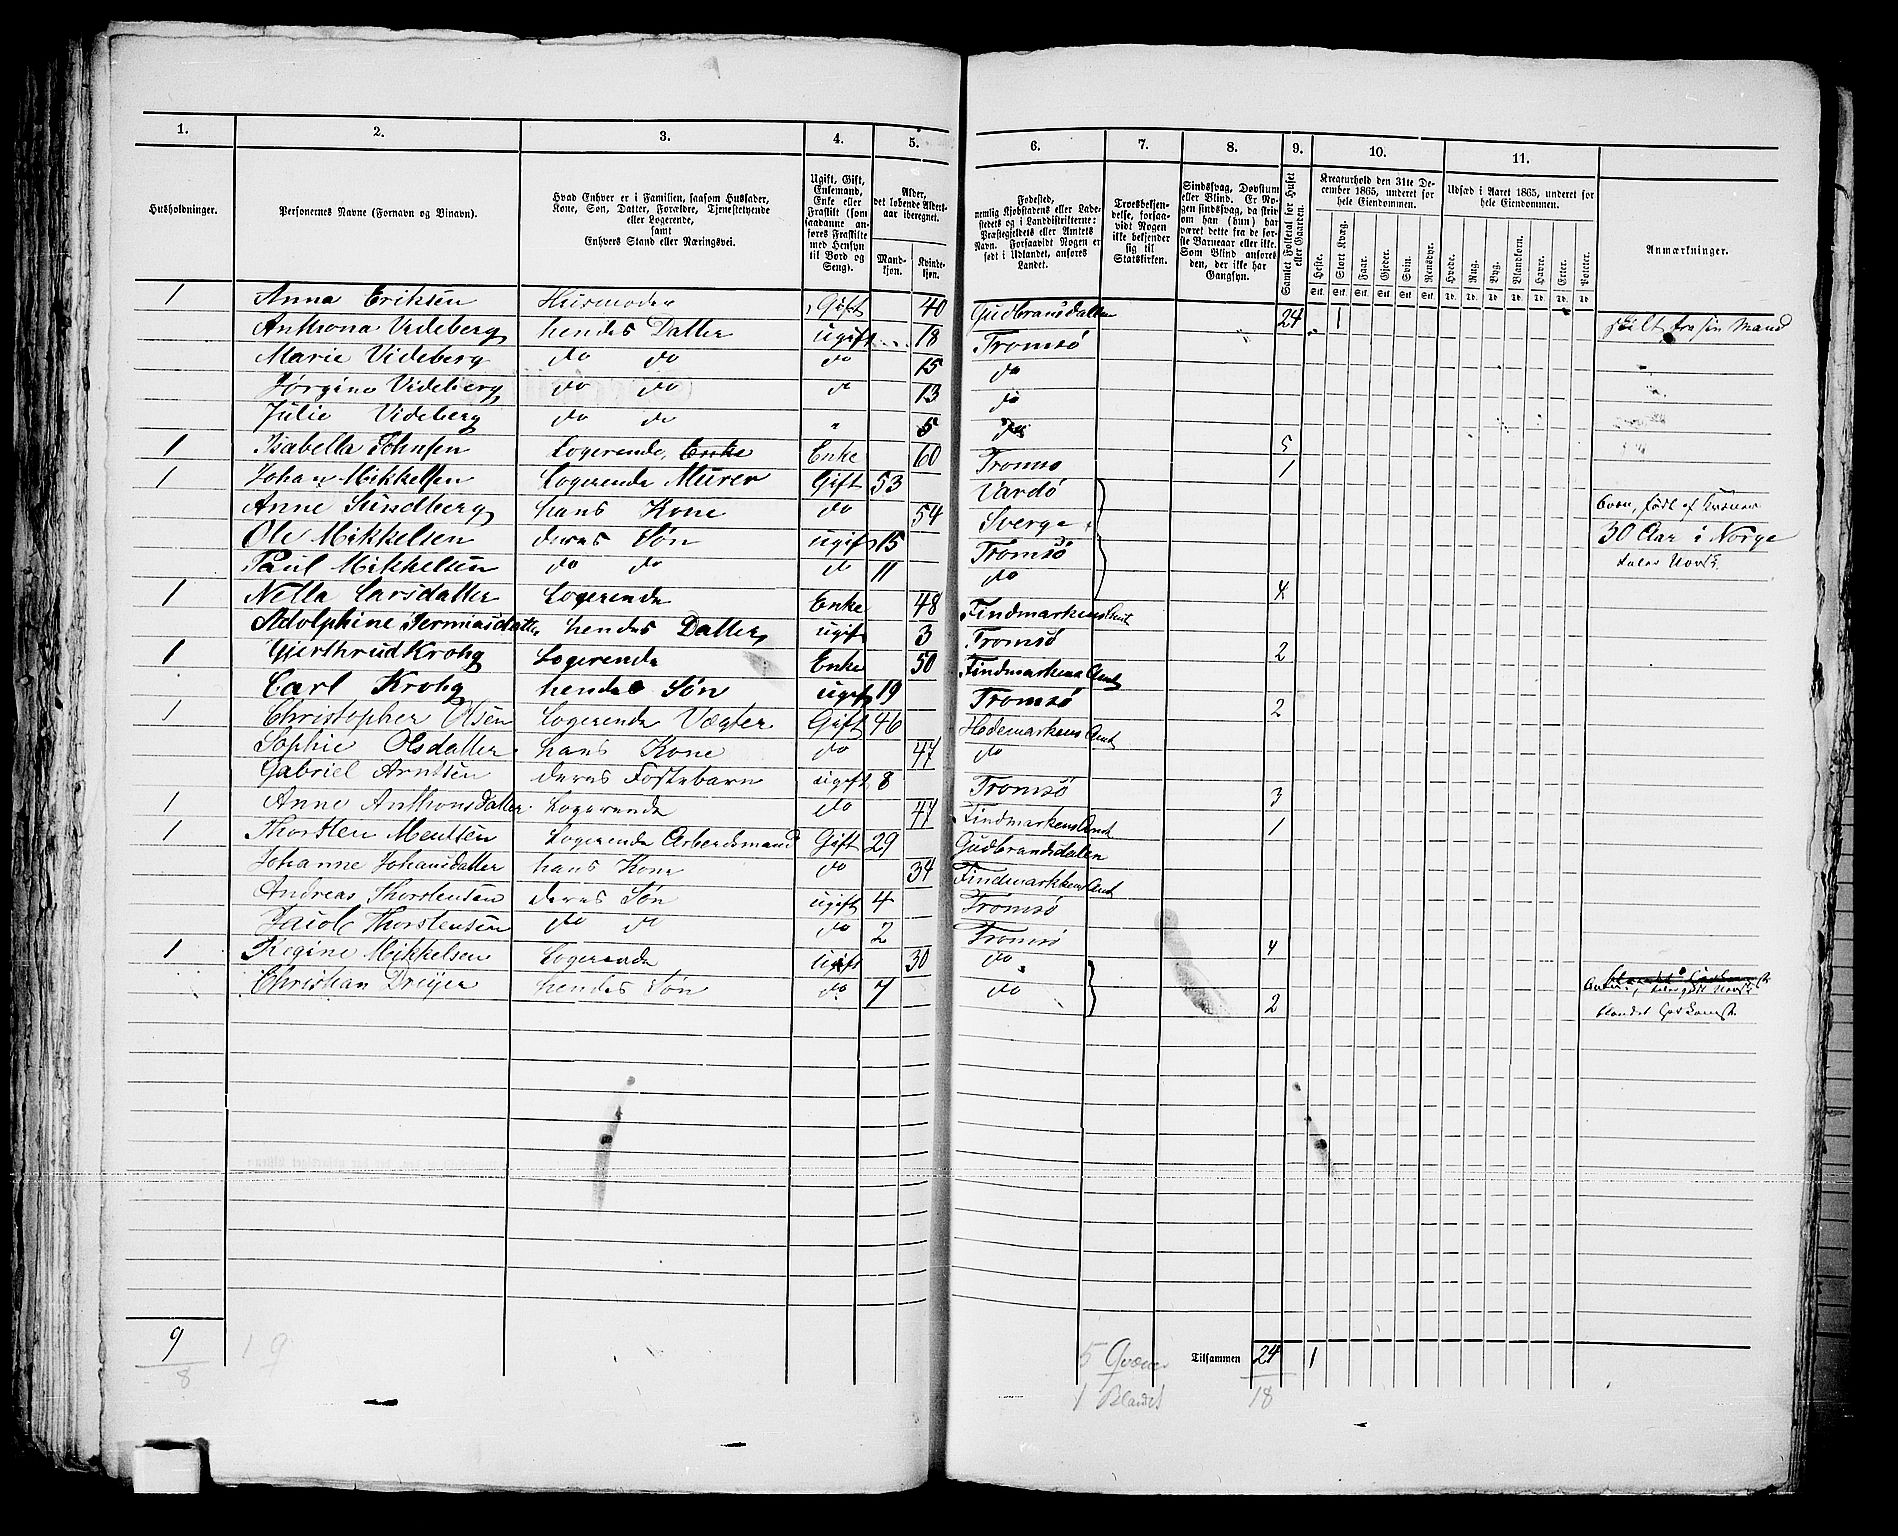 1. 2. 3. 4. 5. 6. 7. 8. 9. 10. 11.
Husholdninger.
Personernes Navne (Fornavn og Binavn).
Hvad Enhver er i Familien, saasom Husfader,
Kone, Søn, Datter, Forældre, Tjenestetyende
eller Logerende,
samt
Enhvers Stand eller Næringsvei.
Ugift, Gift,
Enkemand,
Enke eller
Fraskilt (som
saadanne an-
føres Fraskilte
med Hensyn
til Bord og
Seng).
Alder,
det løbende Alders-
aar iberegnet.
Mand-
kjøn.
Kvinde-
kjøn.
Fødested,
nemlig Kjøbstadens eller Lade-
stedets og i Landdistrikterne:
Præstegjeldets eller Amtets
Navn. Forsaavidt Nogen er
født i Udlandet, anføres
Landet.
Troesbekjen-
delse, forsaa-
vidt Nogen
ikke bekjender
sig til
Statskirken.
Sindssvag, Døvstum
eller Blind. Er No-
gen sindssvag, da skriv
om han (hun) har
været dette fra de før-
ste Barneaar eller ikke.
Som Blind ansøres
den, der ikke har
Gangsyn.
Samlet Folketal for Huset
eller Gaarden.
Kreaturhold den 31te De-
cember 1865, underet for
hele Eiendommen.
Heste. Stort Kvæg. Faar. Gjeder. Svin. Rensdyr.
Stk. Stk. Stk. Stk. Stk. Stk.
Udsæd i Aaret 1865, underet for
hele Eiendommen.
Hvede. Rug. Byg. Blandkorn. Havre. Erter. Poteter.
Td. Td. Td. Td. Td. Td. Td.
Anmærkninger.
1 Anna Eriksen Husmoder Gift 40 Gudbransdalen 24 1 skilt fra sin Mand
Anthona Videberg hendes Datter ugift 18 Tromsø
Marie Videberg do do do 15 do
Jørgine Videberg do do do 13 do
Julie Videberg do do " 5 do 5
1 Isabella Johnsen Logerende, Enke Enke 60 Tromsø 1
1 Johan Mikkelsen Logerende Murer Gift 53 Vardø
Anne Sundberg hans Kone do 54 Sverge
Ole Mikkelsen deres Søn ugift 15 Tromsø 30 Aar i Norge
Paul Mikkelsen do do do 11 do 4 taler Norsk.
1 Nella Larsdatter Logerende Enke 48 Findmarkens Amt
Adolphine Jermiasdatter hendes Datter ugift 3 Tromsø 2
1 Gjerthrud Krohg Logerende Enke 50 Findmarkens Amt
Carl Krohg hendes Søn ugift 19 Tromsø 2
1 Christopher Olsen Logerende Vægter Gift 46 Hedemarkens Amt
Sophie Olsdatter hans Kone do 47 do
Gabriel Arntsen deres Fostebarn ugift 8 Tromsø 3
1 Anne Anthonsdatter Logerende do 47 Findmarkens Amt 1
1 Thorsten Mentsen Logerende Arbeidsmand Gift 29 Gudbrandsdalen
Johanne Johansdatter hans Kone do 34 Findmarkens Amt
Andreas Thorstensen deres Søn ugift 4 Tromsø
Jacob Thorstensen do do do 2 Tromsø 4
1 Regine Mikkelsen Logerende ugift 30 do
Christian Dreyer hendes Søn do 7 do 2
blandet Herkomst
9 19 Tilsammen 24 1
8 18
5 Qvæner
1 Blandet